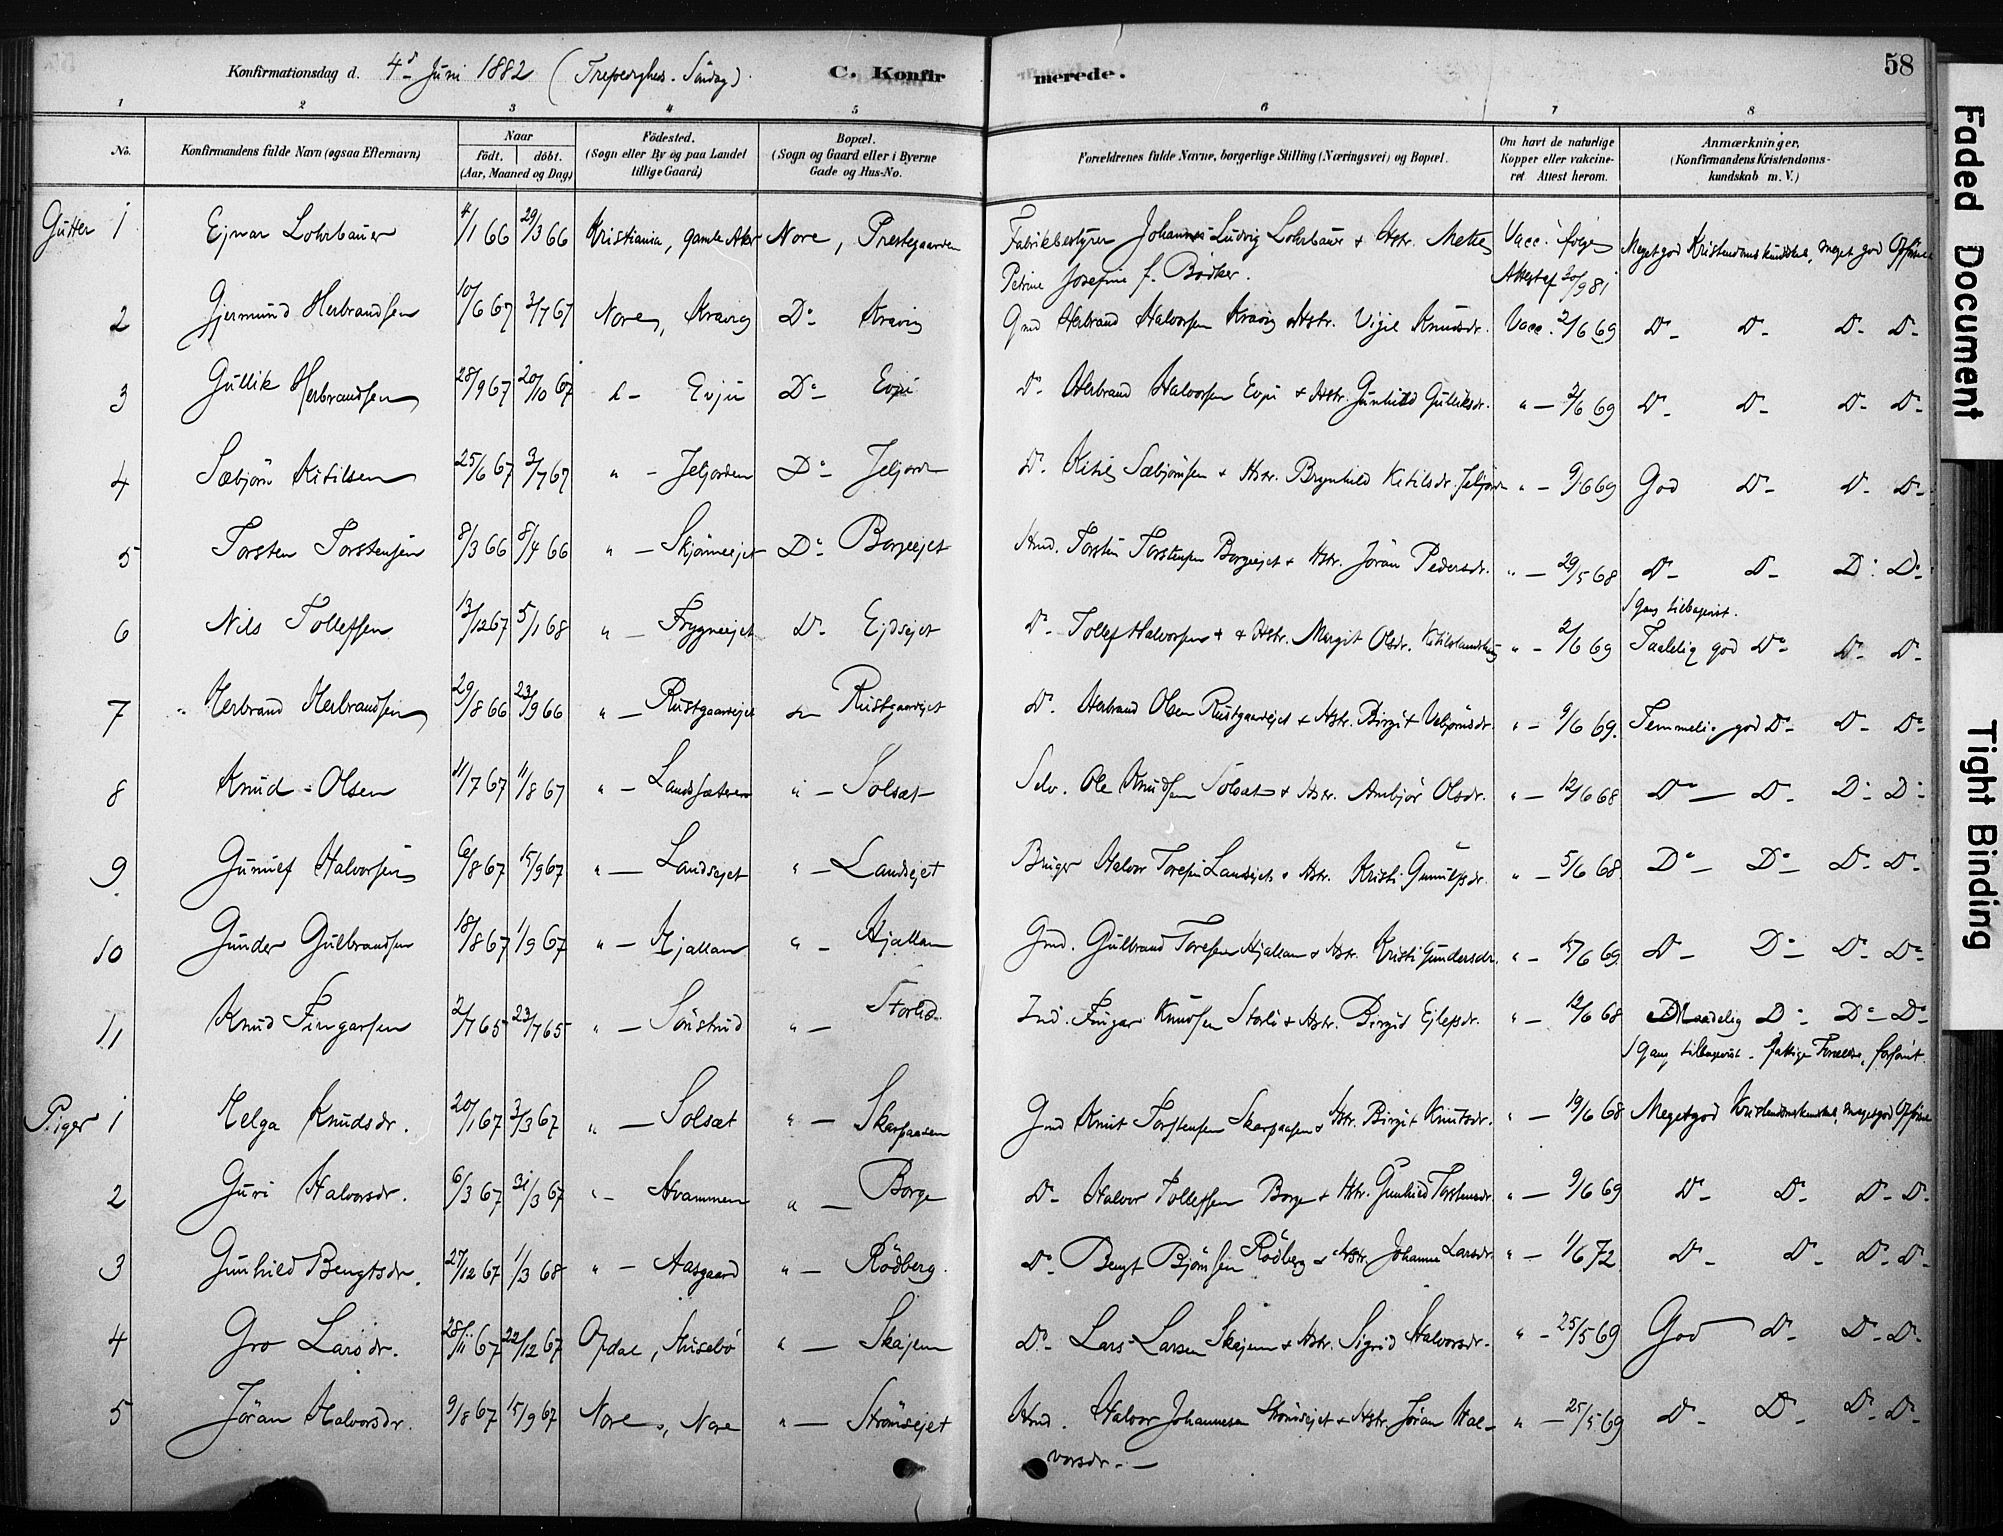 Konfirmationsdag d. 4d Juni 1882 (Trefoldighds. Söndag). C. Konfirmerede. 58
1 2 3 4 5 6 7 8
No. Konfirmandens fulde Navn (ogsaa Efternavn) Naar födt. döbt. (Aar, Maaned og Dag) Födested. (Sogn eller By og paa Landet tillige Gaard) Bopæl. (Sogn og Gaard eller i Byerne Gade og Hus-No. Forældrenes fulde Navne, borgerlige Stilling (Næringsvei) og Bopæl. Om havt de naturlige Kopper eller vakcineret Attest herom. Anmærkninger, (Konfirmandens Kristendomskundskab m. V.)
Gutter 1 Ejnar Lohrbauer 4/1 66 29/3 66 Kristiania, gamle Aker Nore, Prestegaarden Fabrikbestyrer Johannes Ludvig Lohrbauer + Hstr. Mette Vacc. følge Megetgod Kristendomskundskab, meget god Opførsel
Petrine Josefine f. Bödker. Attest af 20/9 81
2 Gjermund Herbrandsen 10/6 67 3/7 67 Nore, Kravig Do Kravig Gmd Herbrand Halvorsen Kravig + Hstr. Vigil Knudsdr. Vacc. 2/6 69 D- D- D- D-
3 Gullik Herbrandsen 28/9 67 20/10 67 d- Evju Do Evju Do Herbrand Halvorsen Evju + Hstr. Gunhild Gulliksdr. " - 2/6 69 D- D- D- D-
4 Sæbjörn Kitilsen 25/6 67 3/7 67 " - Jeljorden Do Jeljorden Do. Kitil Sæbjörnsen + Hstr. Brynhild Kitilsdr. Jeljorden " - 9/6 69 God D- D- D-
5 Torsten Torstensen 8/3 66 8/4 66 " - Skjönneejet Do Borgeejet Hmd. Torsten Torstensen Borgeejet + Hstr. Jöran Pedersdr. " - 29/5 68 D- D- D- Do
1 gang tilbagevist.
6 Nils Tollefsen 13/12 67 5/1 68 " - Frygneejet Do Ejdsejet Do. Tollef Halvorsen + Hstr. Margit Olsdr. " - 2/6 69 Taalelig god Do D- D-
7 Herbrand Herbrandsen 29/8 66 23/9 66 " - Rustgaardejet d- Rustgaardejet Do. Herbrand Olsen Rustgaardejet + Hstr. Birgit " - 9/6 69. Temmelig god Do D- Do
8 Knud Olsen 11/7 67 11/8 67 " - Landsæteren " - Solsæt Selv. Ole Knudsen Solsæt + Hstr. Ambjör Olsdr. " - 12/6 68 Do - D- D- D-
9 Gunulf Halvorsen 6/8 67 15/9 67 " - Landsejet " - Landsejet Bruger Halvor Toresen Landsejet + Hstr. Kristi Gunulfsdr. " - 5/6 68. Do Do D- D-
10 Gunder Gulbrandsen 18/8 67 1/9 67 " - Hjallan " - Hjallan Gmd. Gulbrand Toresen Hjallan + Hstr. Kristi Gundersdr. " - 5/6 69. D- Do Do Do
11 Knud Fingarsen 2/7 65 23/7 65 " - Sönstrud " - Storlid Ind. Fingar Knudsen Storli + Hstr. Birgit Ejlefsdr. " - 12/6 68 Maadelig Do Do Do
1 gang tilbagevist. fattige Forældre, forsömt.
Piger 1 Helga Knudsdr. 20/1 67 3/3 67 " - Solsæt " - Skarpaasen Gmd Knut Torstensen Skarpaasen + Hstr. Birgit Knutsdr. " - 19/6 68 Megetgod Kristendomskundskab, megetgod Opførsel
2 Guri Halvorsdr. 6/3 67 31/3 67 " - Hvammen " - Borge D- Halvor Tollefsen Borge + Hstr. Gunhild Torstensdr. " - 9/6 69 D- D- D- D-
3 Gunhild Bengtsdr. 27/12 67 1/3 68 " - Aasgaard " - Rödberg. Do. Bengt Björnsen Rödberg + Hstr. Johanne Larsdr. " - 1/6 72. D- D- D- D-
4 Gro Larsdr. 28/11 67 22/12 67 Opdal, Husebö " - Skajem Do. Lars Larsen Skajem + Hstr. Sigrid Halvorsdr. " - 25/5 69 God D- D- D-
5 Jöran Halvorsdr. 9/8 67 15/9 67 Nore, Nore " - Strömsejet Hmd. Halvor Johannesen Strömsejet + Hstr. Jöran Hal- " - 25/5 69 D- D- D- D-
vorsdr. -
Faded Document
Tight Binding